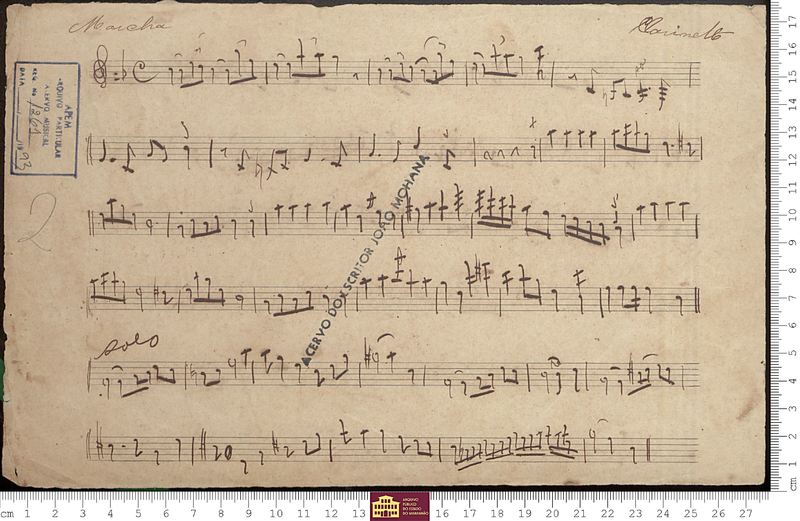 Marcha
Clarinett
APEM
ARQUIVO PARTICULAR
ACERVO MUSICAL
REG. NO 1261
DATA 93
2
ACERVO DO ESCRITOR JOÃO MOHANA
solo
cm 1 2 3 4 5 6 7 8 9 10 11 12 13 16 17 18 19 20 21 22 23 24 25 26 27
ARQUIVO
PÚBLICO
DO ESTADO
DO MARANHÃO
cm 1 2 3 4 5 6 7 8 9 10 11 12 13 14 15 16 17